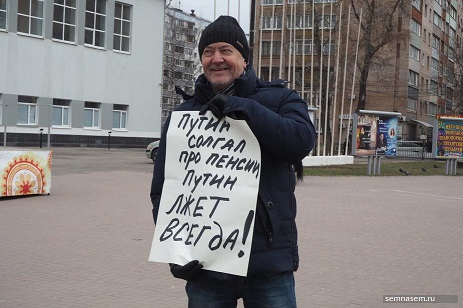 ПУТИН
СОЛГАЛ
ПРО ПЕНСИИ
ПУТИН
ЛЖЕТ
ВСЕГДА!
semnasem.ru